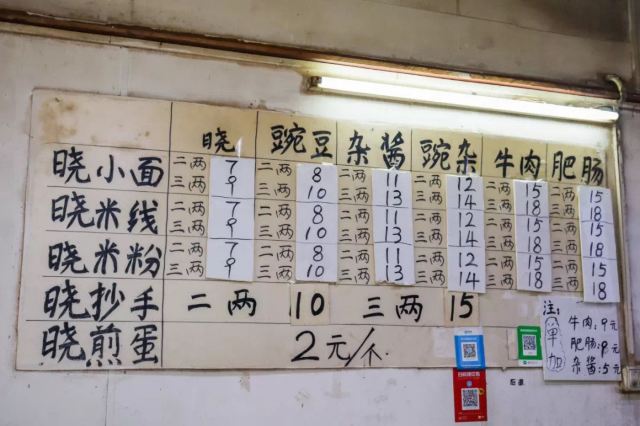 晓 豌豆 杂酱 豌杂 牛肉 肥肠
晓小面 二两 7 二两 8 二两 11 二两 12 二两 15 二两 15
三两 9 三两 10 三两 13 三两 14 三两 18 三两 18
晓米线 二两 7 二两 8 二两 11 二两 12 二两 15 二两 15
三两 9 三两 10 三两 13 三两 14 三两 18 三两 18
晓米粉 二两 7 二两 8 二两 11 二两 12 二两 15 二两 15
三两 9 三两 10 三两 13 三两 14 三两 18 三两 18
晓抄手 二两 10 三两 15
晓煎蛋 2元/个
注:
单加
牛肉:9元
肥肠:9元
杂酱:5元